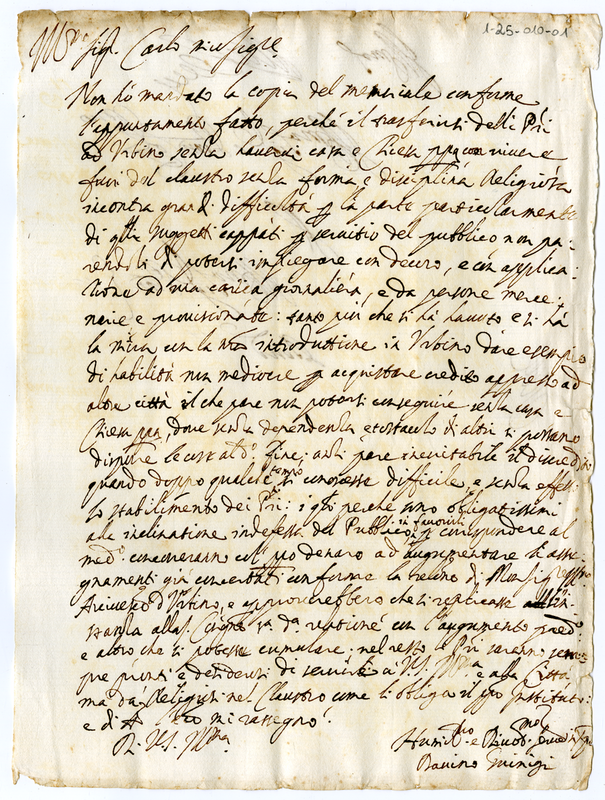 1-25-010-01
Sig.r Carlo mio Sig.re
Non hò mandato la copia del memoriale conforme
l'appuntamento fatto, perché il trasferirsi delli P.ri
ad Urbino senza havervi casa e Chiesa pp.a con vivere
fuori del claustro senza forma, e disciplina Religiosa
incontra gran difficultà p la parte particolarmente
di q.lli soggetti p servitio del publico non pa-
rendoli di potersi impiegare con decoro, e con applica-
tione ad una carica giornaliera, e da persone merce-
narie e provisionate: tanto più che si hà havuto e si hà
la mira con la introduttione in Urbino dare esempio
di habilità non mediocre p acquistare credito appresso ad
altre città il che pare non potersi conseguire senza casa e
Chiesa dove senza dependenza e ostacolo di altri si possano
disporre le cose al d.o fine; anzi pare inevitabile il discredito
quando doppo qualche tempo si conoscesse difficile e senza effet-
to lo stabilimento dei P.ri: i q.li perche sono obligatissimi
alla inclinatione indefessa del Publico in favorirli p corrispondere al
med.o concorreranno col denaro ad augumentare li asse-
gnamenti già concertati conforme la di Mons.ig.r
Arcivesco d'Urbino, e approverebbero che si replicasse
stanza alla con l'augumento pred.o
e altro che si potesse cumulare: nel resto i P.ri saranno sem-
pre pronti e desiderosi di servire à V.S. Ill.ma e alla Città
ma da Religiosi nel Claustro come li obliga il Instituto:
e di mi rassegno.
D. V.S. Ill.ma
Humil.mo e Divot.mo